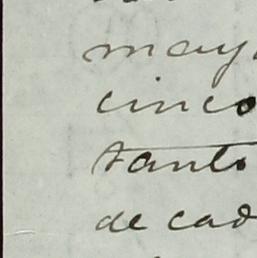 may
cinco
tanto
de cad